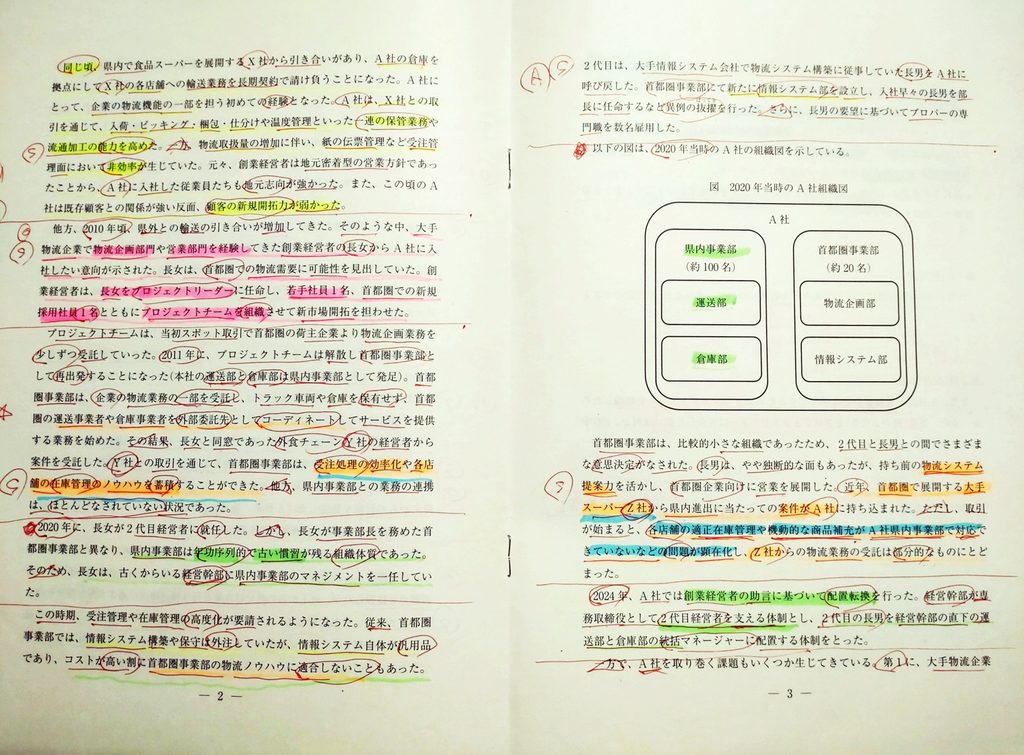 同じ頃、県内で食品スーパーを展開するX社から引き合いがあり、A社の倉庫を
拠点にしてX社の各店舗への輸送業務を長期契約で請け負うことになった。A社に
とって、企業の物流機能の一部を担う初めての経験となった。A社は、X社との取
引を通じて、入荷・ピッキング・梱包・仕分けや温度管理といった一連の保管業務や
流通加工の能力を高めた。一方、物流取扱量の増加に伴い、紙の伝票管理など受注管
理面において非効率が生じていた。元々、創業経営者は地元密着型の営業方針であっ
たことから、A社に入社した従業員たちも地元志向が強かった。また、この頃のA
社は既存顧客との関係が強い反面、顧客の新規開拓力が弱かった。
他方、2010年頃、県外との輸送の引き合いが増加してきた。そのような中、大手
物流企業で物流企画部門や営業部門を経験してきた創業経営者の長女からA社に入
社したい意向が示された。長女は、首都圏での物流需要に可能性を見出していた。創
業経営者は、長女をプロジェクトリーダーに任命し、若手社員1名、首都圏での新規
採用社員1名とともにプロジェクトチームを組織させて新市場開拓を担わせた。
プロジェクトチームは、当初スポット取引で首都圏の荷主企業より物流企画業務を
少しずつ受託していった。2011年に、プロジェクトチームは解散し首都圏事業部と
して再出発することになった(本社の運送部と倉庫部は県内事業部として発足)。首都
圏事業部は、企業の物流業務の一部を受託し、トラック車両や倉庫を保有せず、首都
圏の運送事業者や倉庫事業者を外部委託先としてコーディネートしてサービスを提供
する業務を始めた。その結果、長女と同窓であった外食チェーンY社の経営者から
案件を受託した。Y社との取引を通じて、首都圏事業部は、受注処理の効率化や各店
舗の在庫管理のノウハウを蓄積することができた。他方、県内事業部との業務の連携
は、ほとんどなされていない状況であった。
2020年に、長女が2代目経営者に就任した。しかし、長女が事業部長を務めた首
都圏事業部と異なり、県内事業部は年功序列的で古い慣習が残る組織体質であった。
そのため、長女は、古くからいる経営幹部に県内事業部のマネジメントを一任してい
た。
この時期、受注管理や在庫管理の高度化が要請されるようになった。従来、首都圏
事業部では、情報システム構築や保守は外注していたが、情報システム自体が汎用品
であり、コストが高い割に首都圏事業部の物流ノウハウに適合しないこともあった。
— 2 —
2代目は、大手情報システム会社で物流システム構築に従事していた長男をA社に
呼び戻した。首都圏事業部にて新たに情報システム部を設立し、入社早々の長男を部
長に任命するなど異例の抜擢を行った。さらに、長男の要望に基づいてプロパーの専
門職を数名雇用した。
以下の図は、2020年当時のA社の組織図を示している。
図 2020年当時のA社組織図
A社
県内事業部
(約100名)
運送部
倉庫部
首都圏事業部
(約20名)
物流企画部
情報システム部
首都圏事業部は、比較的小さな組織であったため、2代目と長男との間でさまざま
な意思決定がなされた。長男は、やや独断的な面もあったが、持ち前の物流システム
提案力を活かし、首都圏企業向けに営業を展開した。近年、首都圏で展開する大手
スーパーZ社から県内進出に当たっての案件がA社に持ち込まれた。ただし、取引
が始まると、各店舗の適正在庫管理や機動的な商品補充がA社県内事業部で対応で
きていないなどの問題が顕在化し、Z社からの物流業務の受託は部分的なものにとど
まった。
2024年、A社では創業経営者の助言に基づいて配置転換を行った。経営幹部が専
務取締役として2代目経営者を支える体制とし、2代目の長男を経営幹部の直下の運
送部と倉庫部の統括マネージャーに配置する体制をとった。
一方で、A社を取り巻く課題もいくつか生じてきている。第1に、大手物流企業
— 3 —